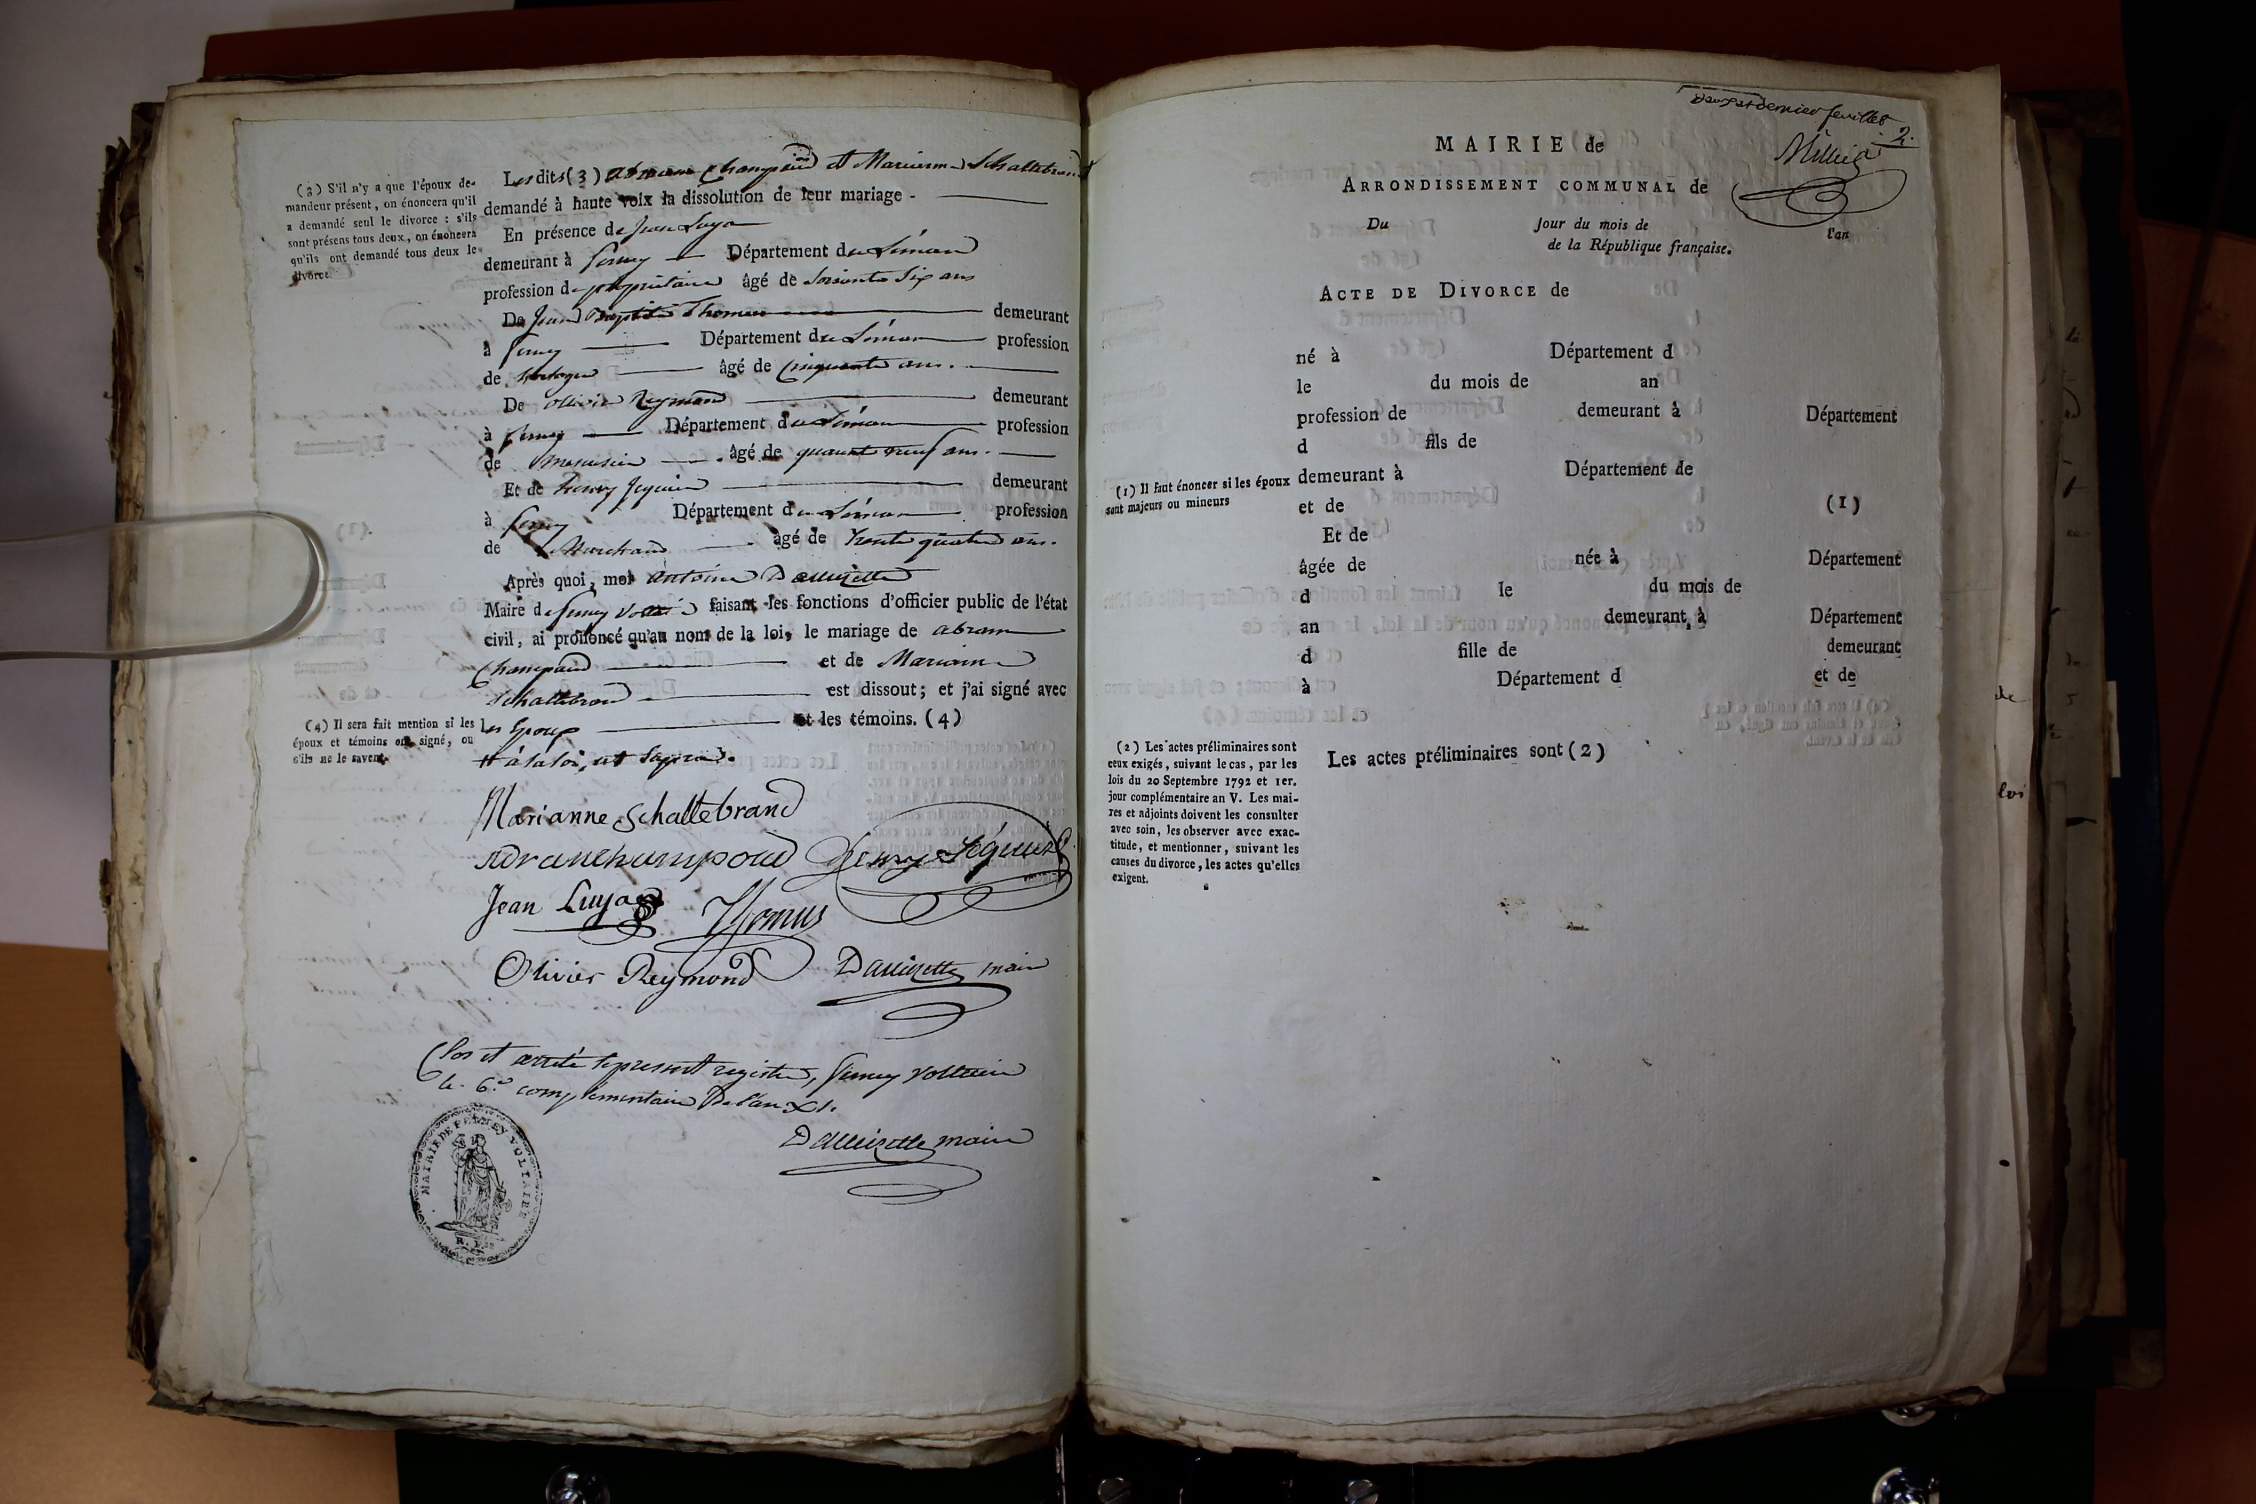 (3) S'il n'y a que l'époux de-
mandeur présent, on énoncera qu'il
a demandé seul le divorce : s'ils
sont présens tous deux, on énoncera
qu'ils ont demandé tous deux le
divorce.
Lesdits (3) abram Champoud et Marianne Schaltebrand
demandé à haute voix la dissolution de leur mariage -
En présence de Jean Luya
demeurant à ferney Département du Léman
profession de propriétaire âgé de soixante six ans
De Jean Baptiste Thomus demeurant
à ferney Département du Léman profession
de horloger âgé de cinquante ans.
De ollivier Reymond demeurant
à ferney Département du Léman profession
de menuisier âgé de quarante neuf ans.
Et de henry Jequier demeurant
à ferney Département du Léman profession
de Marchand âgé de trente quatre ans.
Après quoi, moi antoine Dauuizette
Maire de ferney voltaire faisant les fonctions d'officier public de l'état
civil, ai prononcé qu'au nom de la loi, le mariage de abram
Champoud et de Marianne
Schaltebrand est dissout; et j'ai signé avec
les Epoux et les témoins. (4)
(4) Il sera fait mention si les
époux et témoins ont signé, ou
s'ils ne le savent.
Marianne Schaltebrand
Henry Jéquier
Jean Luya Thomus
Olivier Reymond Dauuizette maire
Clos et arrêté le present registre, ferney voltaire
le 6e complémentaire de l'an XI.
Dauuizette maire
MAIRIE DE FERNEY VOLTAIRE
R. F.
dernier feuillet
2.
MAIRIE de
ARRONDISSEMENT COMMUNAL de
Du Jour du mois de l'an
de la République française.
ACTE DE DIVORCE de
né à Département d
le du mois de an
profession de demeurant à Département
d fils de
demeurant à Département de
(1) Il faut énoncer si les époux
sont majeurs ou mineurs
et de (1)
Et de
âgée de née à Département
d le du mois de
an demeurant à Département
d fille de demeurant
à Département d et de
(2) Les actes préliminaires sont
ceux exigés, suivant le cas, par les
lois du 20 Septembre 1792 et 1er.
jour complémentaire an V. Les mai-
res et adjoints doivent les consulter
avec soin, les observer avec exac-
titude, et mentionner, suivant les
causes du divorce, les actes qu'elles
exigent.
Les actes préliminaires sont (2)